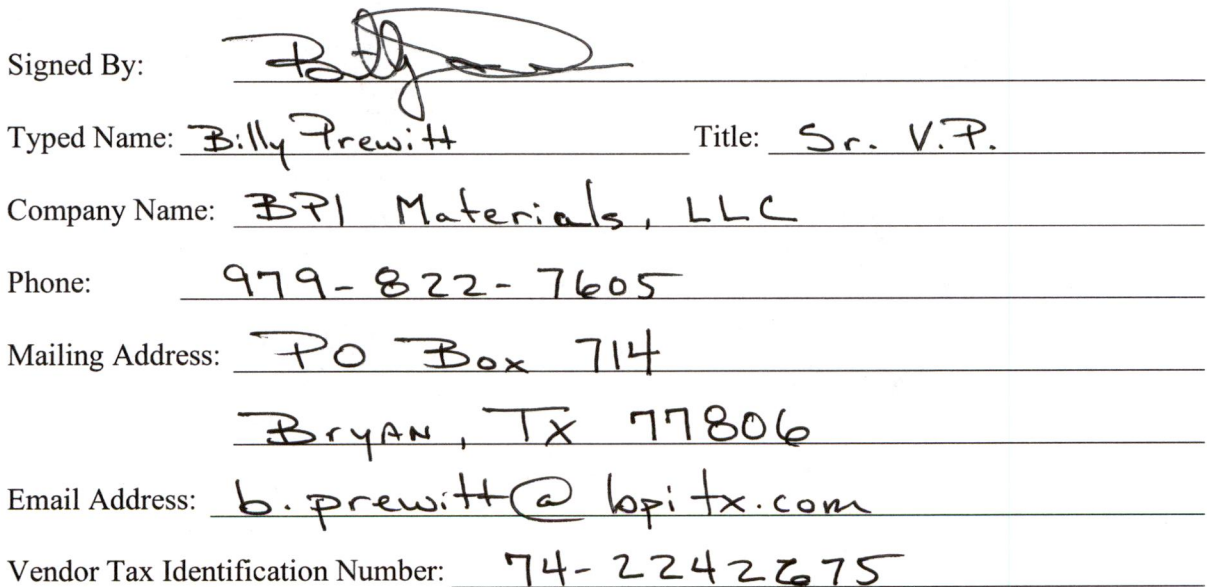 Signed By:
Typed Name: Billy Prewitt Title: Sr. V.P.
Company Name: BPI Materials, LLC
Phone: 979-822-7605
Mailing Address: PO Box 714
Bryan, Tx 77806
Email Address: b.prewitt@bpitx.com
Vendor Tax Identification Number: 74-2242675